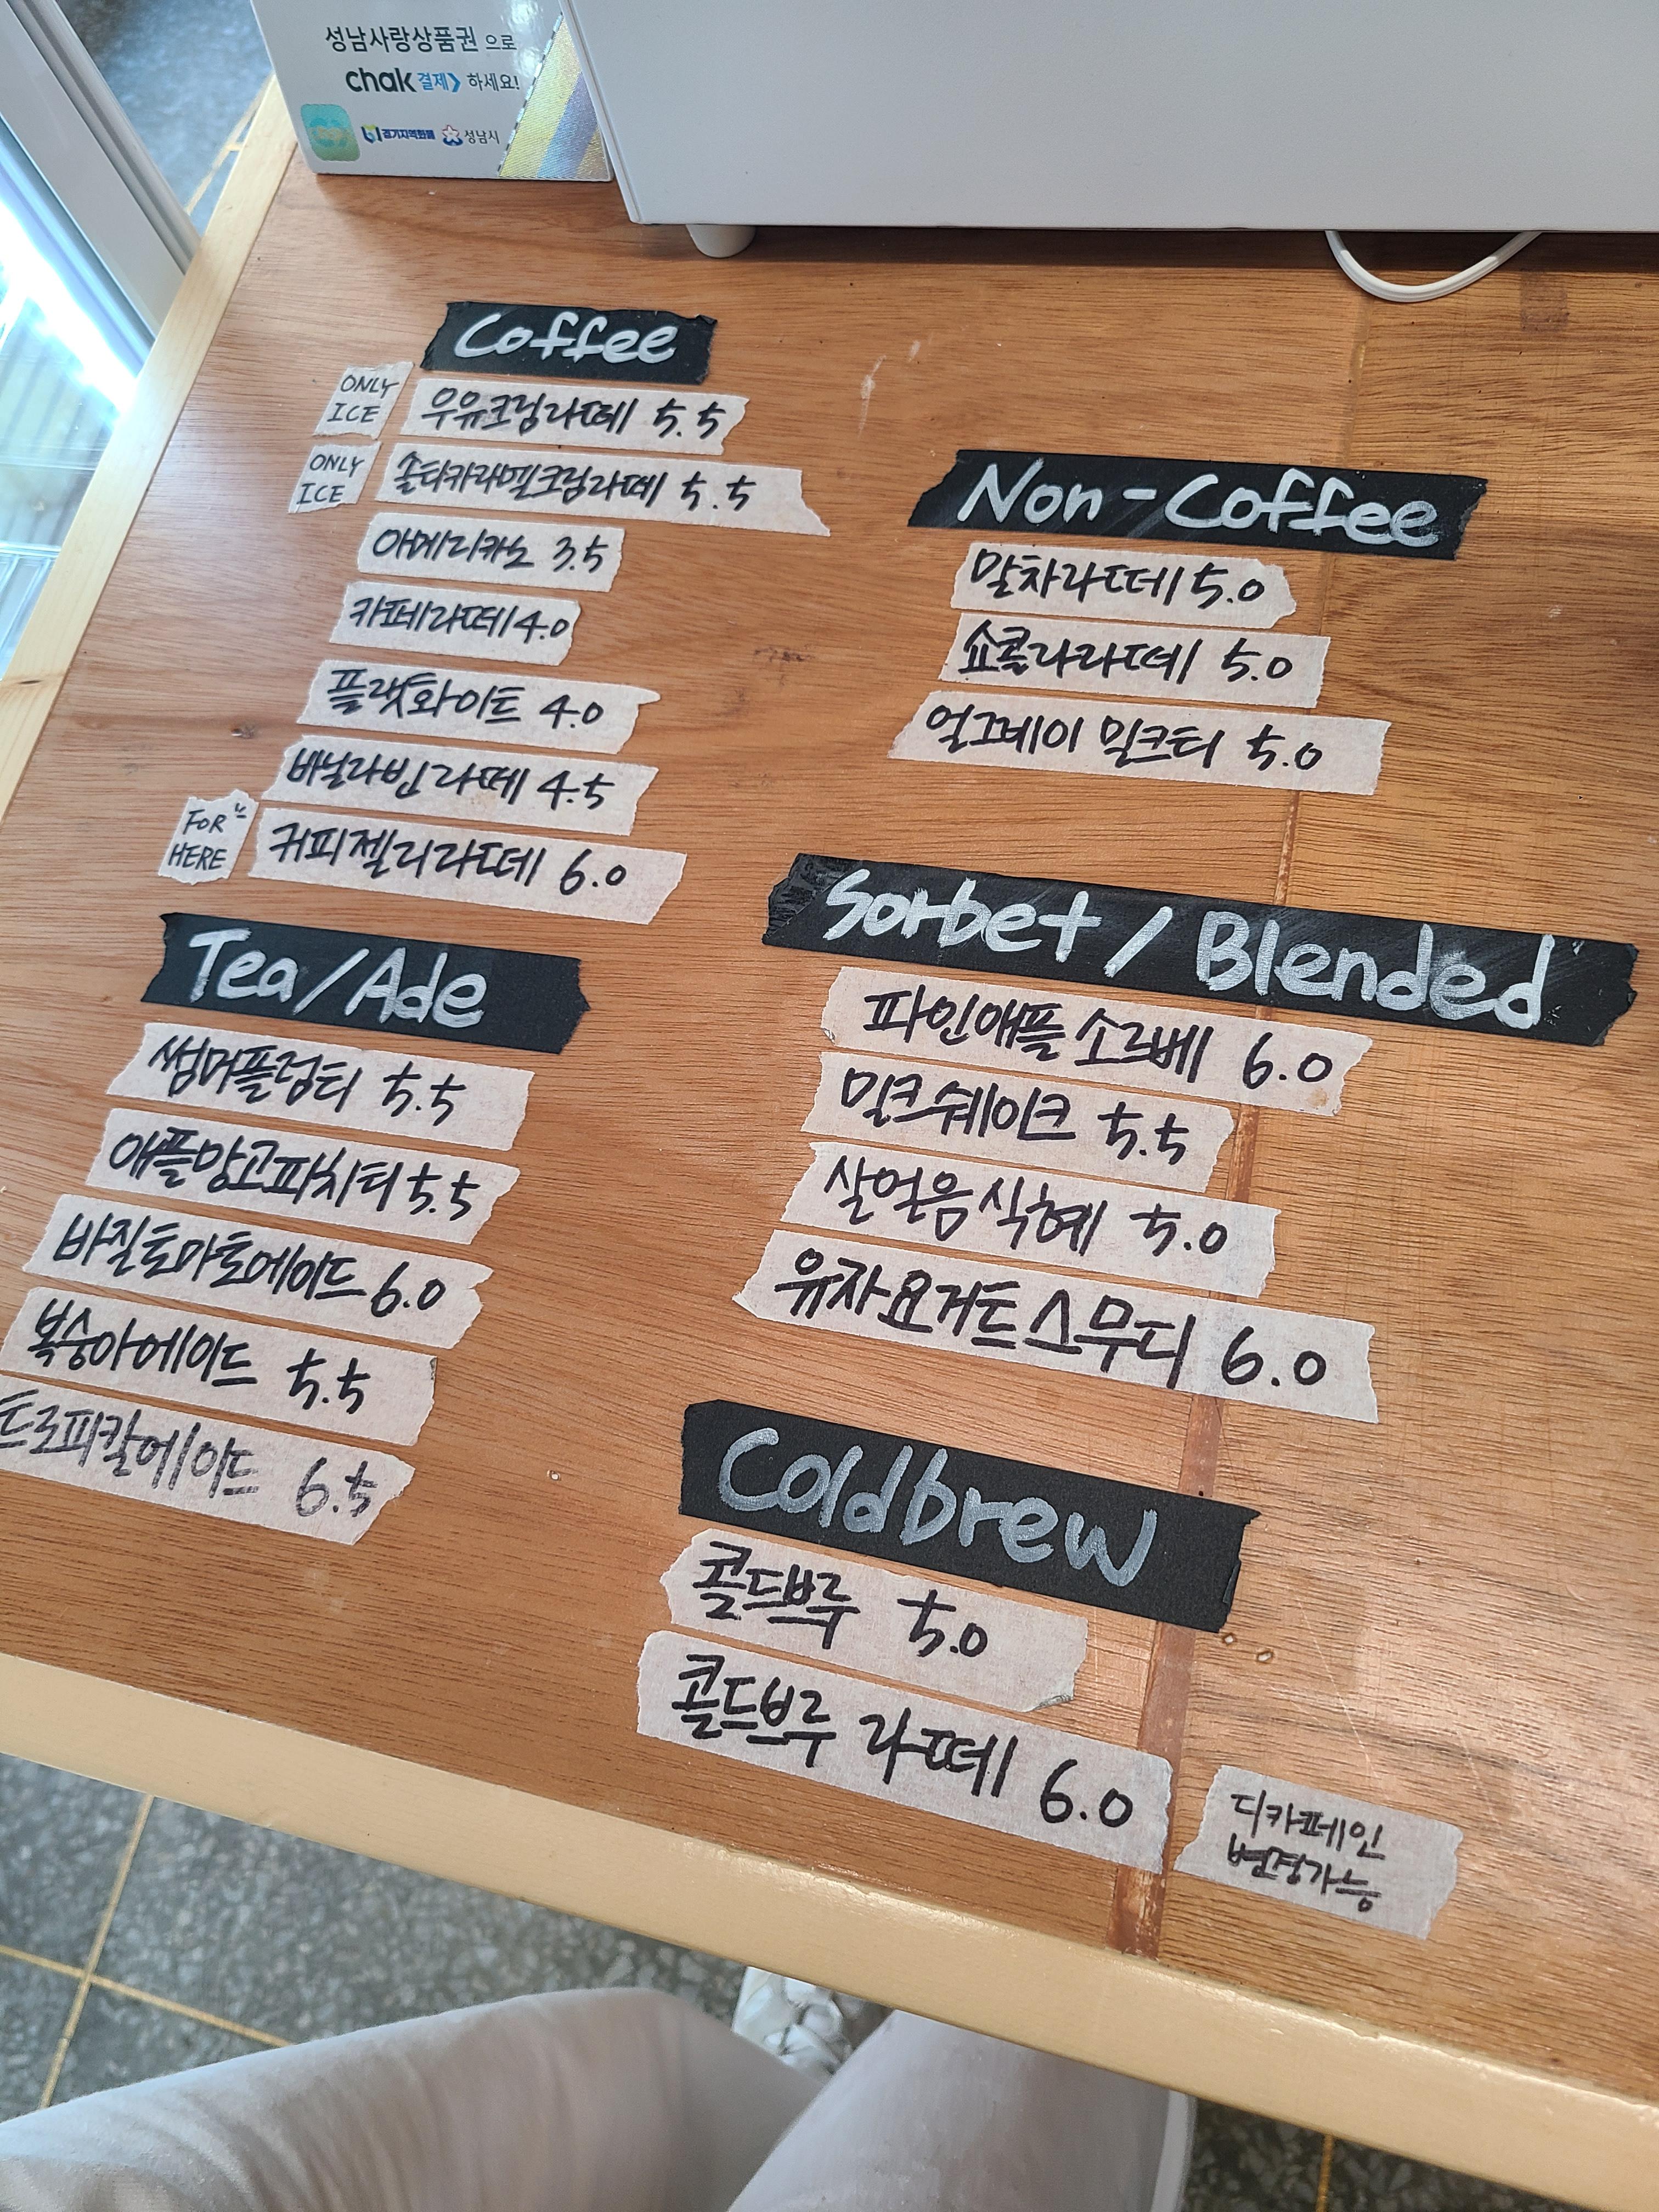 성남사랑상품권 으로
chak 결제 하세요!
경기지역화폐 성남시
Coffee
ONLY
ICE
우유크림라떼 5.5
ONLY
ICE
솔티카라멜크림라떼 5.5
아메리카노 3.5
카페라떼 4.0
플랫화이트 4.0
바닐라빈라떼 4.5
FOR
HERE
커피젤리라떼 6.0
Tea/Ade
썸머플럼티 5.5
애플망고피치티 5.5
바질토마토에이드 6.0
복숭아에이드 5.5
트로피칼에이드 6.5
Non-Coffee
말차라떼 5.0
쇼콜라라떼 5.0
얼그레이 밀크티 5.0
Sorbet/Blended
파인애플 소르베 6.0
밀크쉐이크 5.5
살얼음식혜 5.0
유자요거트스무디 6.0
Coldbrew
콜드브루 5.0
콜드브루 라떼 6.0
디카페인
변경가능